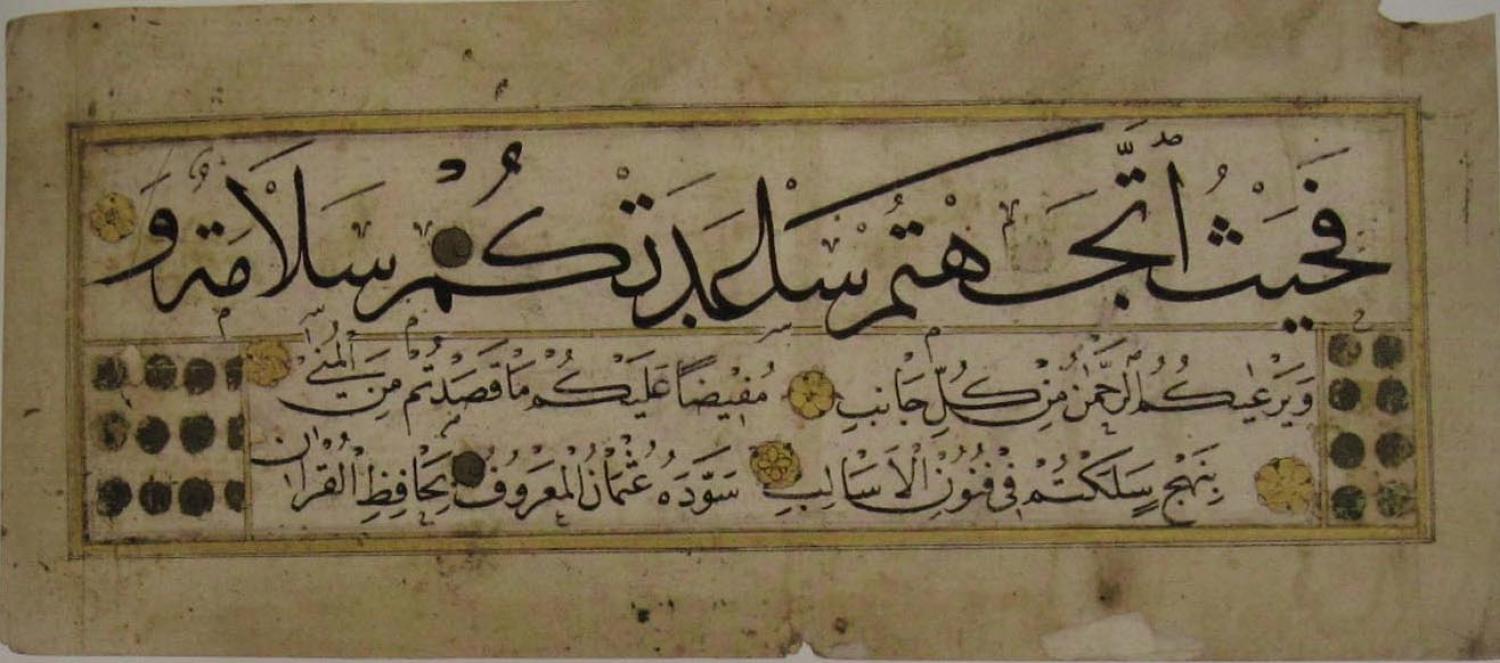 فَحَيْثُ اتَّجَهْتُمْ سَاعَدَتْكُمْ سَلَامَةٌ و
وَيَرْعٰيكُمُ الرَّحْمٰنُ مِنْ كُلِّ جَانِبِ مُفِيْضاً عَلَيْكُمْ مَا قَصَدْتُمْ مِنَ الْمُنٰى
بِنَهْجٍ سَلَكْتُمْ فِي فُنُوْنِ الْاَسَالِبِ سَوَّدَهُ عُثْمَانُ الْمَعْرُوفُ بِحَافِظِ الْقُرْاٰنِ